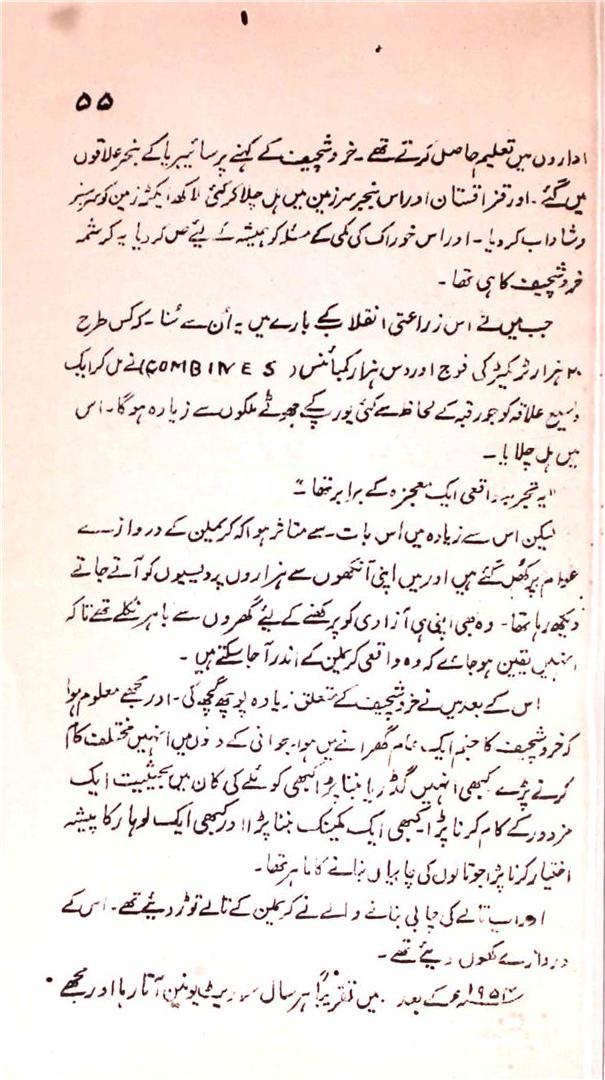 ۵۵
اداروں میں تعلیم حاصل کرتے تھے۔ خروشچیف کے کہنے پر سائیبریا کے بنجر علاقوں
میں گئے۔ اور قزاقستان اور اس بنجر سرزمین میں ہل چلا کر کئی لاکھ ایکڑ زمین کو سرسبز
و شاداب کر دیا۔ اور اس خوراک کی کمی کے مسئلہ کو ہمیشہ کے لیے حل کر دیا یہ کرشمہ
خروشچیف کا ہی تھا۔
جب میں نے اس زراعتی انقلاب کے بارے میں یہ اُن سے سُنا۔ کہ کس طرح
۲۰ ہزار ٹریکٹر کی فوج اور دس ہزار کمبائنس (COMBINES) نے مل کر ایک
وسیع علاقہ کو جو رقبہ کے لحاظ سے کئی یورپ کے چھوٹے ملکوں سے زیادہ ہوگا۔ اس
میں ہل چلایا۔
"یہ تجربہ واقعی ایک معجزہ کے برابر تھا۔"
لیکن اس سے زیادہ میں اس بات سے متاثر ہوا کہ کریملین کے دروازے
عوام پر کھُل گئے ہیں اور میں اپنی آنکھوں سے ہزاروں پردیسیوں کو آتے جاتے
دیکھ رہا تھا۔ وہ بھی اپنی ہی آزادی کو پرکھنے کے لیئے گھروں سے باہر نکلے تھے تاکہ
انہیں یقین ہو جائے کہ وہ واقعی کریملین کے اندر آجا سکتے ہیں۔
اس کے بعد میں نے خروشچیف کے متعلق زیادہ پوچھ گچھ کی۔ اور مجھے معلوم ہوا
کہ خروشچیف کا جنم ایک عام گھرانے میں ہوا۔ جوانی کے دنوں میں انہیں مختلف کام
کرنے پڑے کبھی انہیں گڈریا بننا پڑا کبھی کوئلے کی کان میں بحیثیت ایک
مزدور کے کام کرنا پڑا کبھی ایک مکینک بننا پڑا اور کبھی ایک لوہار کا پیشہ
اختیار کرنا پڑا جو تالوں کی چابیاں بنانے کا ماہر تھا۔
اور اب تالے کی چابی بنانے والے نے کریملین کے تالے توڑ دیئے تھے۔ اس کے
دروازے کھول دیئے تھے۔
۱۹۵۴ء کے بعد میں تقریباً ہر سال سوویٹ یونین آتا رہا اور مجھے